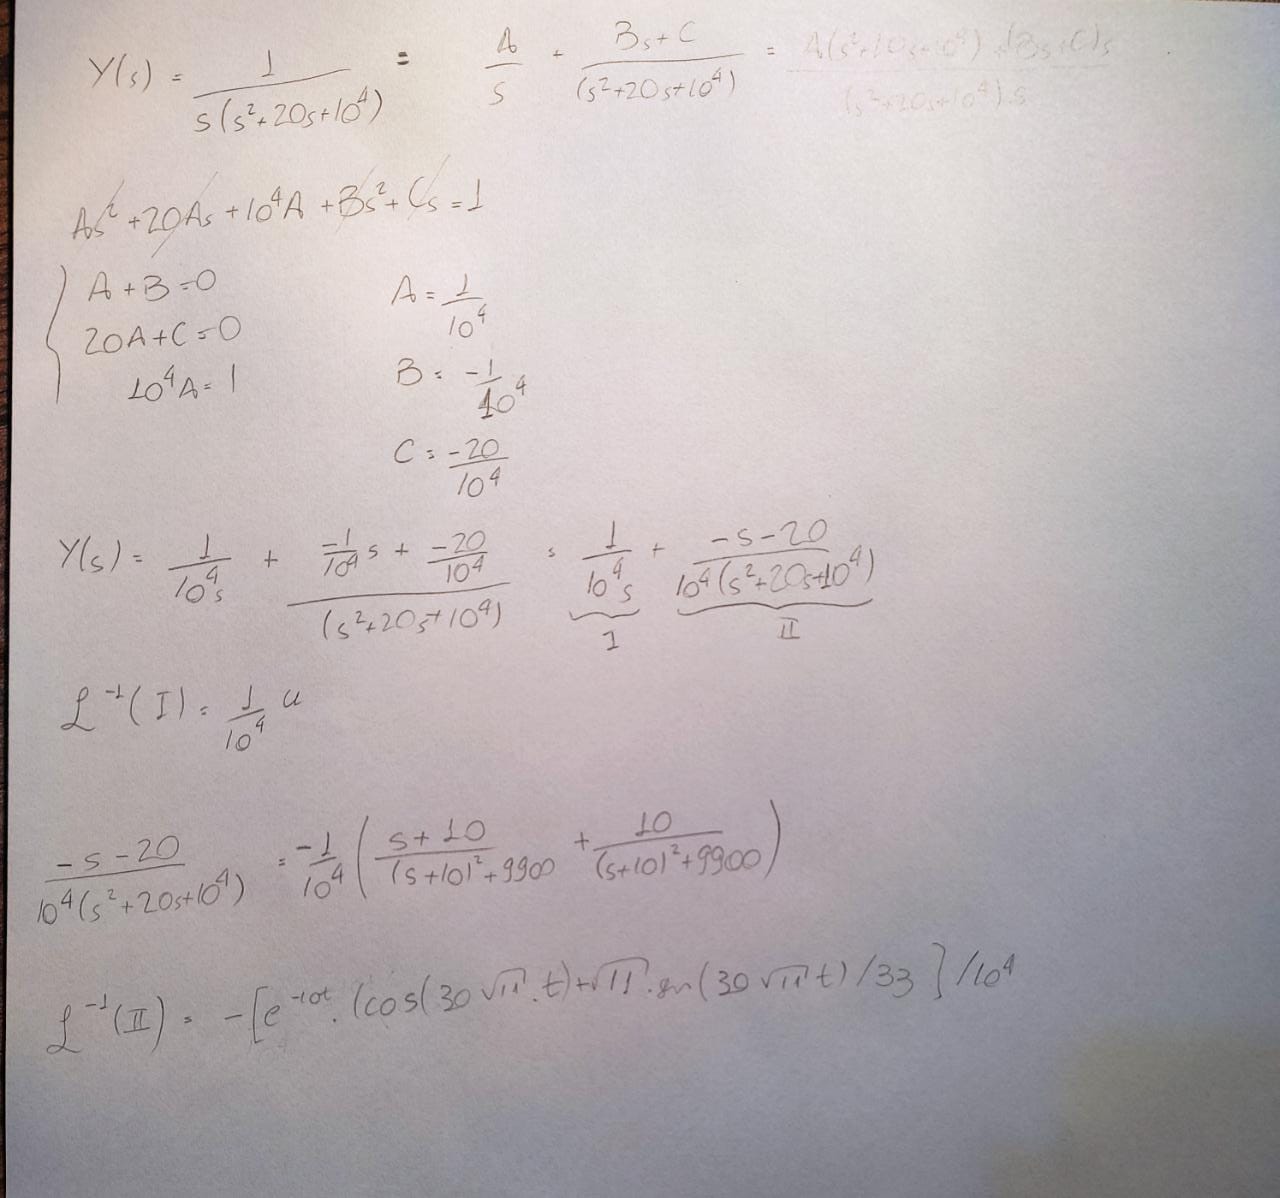 Y(s) = 1 / s(s²+20s+10⁴) = A/s + Bs+C / (s²+20s+10⁴) = A(s²+20s+10⁴)+(Bs+C)s / (s²+20s+10⁴).s
As² + 20As + 10⁴A + Bs² + Cs = 1
A + B = 0 A = 1/10⁴
20A + C = 0
10⁴A = 1 B = -1/10⁴
C = -20/10⁴
Y(s) = 1/10⁴s + (-1/10⁴ s + -20/10⁴) / (s²+20s+10⁴) = 1/10⁴s + -s-20 / 10⁴(s²+20s+10⁴)
I II
ℒ⁻¹(I) = 1/10⁴ u
-s-20 / 10⁴(s²+20s+10⁴) = -1/10⁴ ( s+10 / (s+10)²+9900 + 10 / (s+10)²+9900 )
ℒ⁻¹(II) = -[e⁻¹⁰ᵗ. (cos(30√11.t)+√11.sen(30√11 t)/33]/10⁴